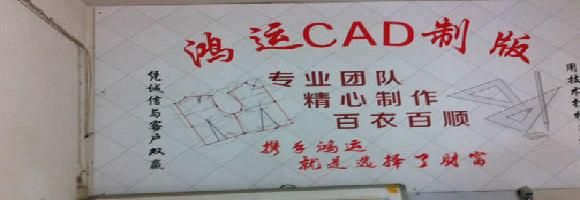 鸿运CAD制版
专业团队
精心制作
百衣百顺
携手鸿运
就是选择了财富
凭诚信与客户双赢
用技术